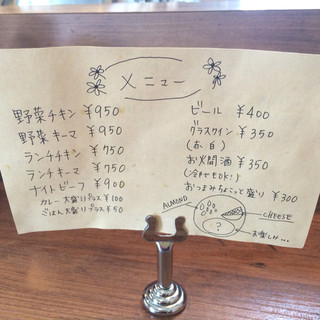 メニュー
野菜チキン ¥950
野菜キーマ ¥950
ランチチキン ¥750
ランチキーマ ¥750
ナイトビーフ ¥900
カレー大盛りプラス ¥100
ごはん大盛りプラス ¥50
ビール ¥400
グラスワイン ¥350
(赤、白)
お火間酒 ¥350
(冷やもOK!)
おつまみちょこっと盛り ¥300
ALMOND
CHEESE
?
お楽しみ…